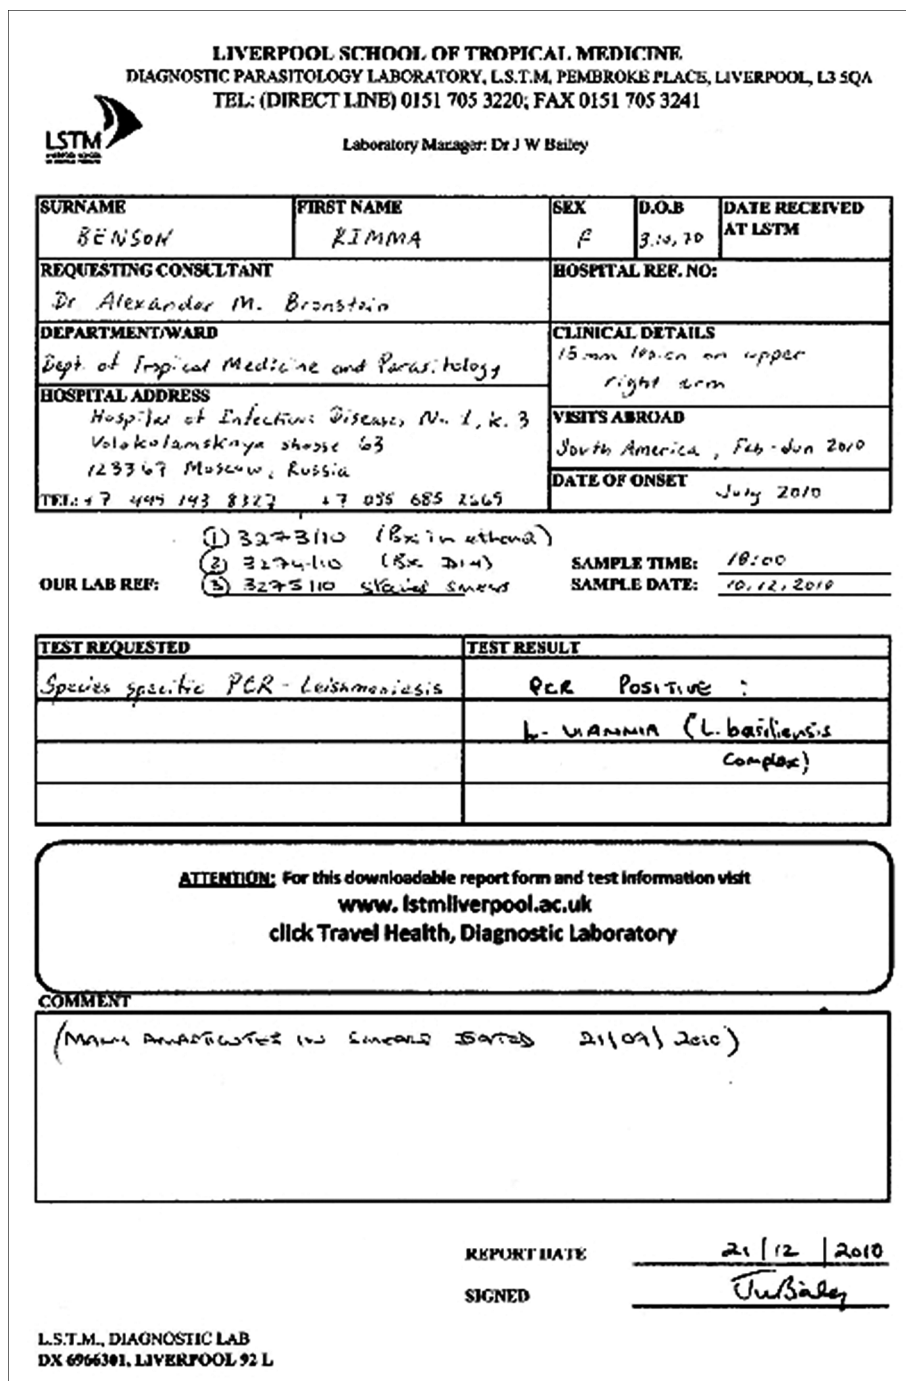 LIVERPOOL SCHOOL OF TROPICAL MEDICINE
DIAGNOSTIC PARASITOLOGY LABORATORY, L.S.T.M, PEMBROKE PLACE, LIVERPOOL, L3 5QA
TEL: (DIRECT LINE) 0151 705 3220; FAX 0151 705 3241
LSTM
Laboratory Manager: Dr J W Bailey
SURNAME FIRST NAME SEX D.O.B DATE RECEIVED AT LSTM
BENSON RIMMA F 3.10.70
REQUESTING CONSULTANT
Dr Alexander M. Bronstein
HOSPITAL REF. NO:
DEPARTMENT/WARD
Dept. of Tropical Medicine and Parasitology
CLINICAL DETAILS
15 mm lesion on upper
right arm
HOSPITAL ADDRESS
Hospital of Infectious Diseases No. 1, k. 3
Volokolamskaya shosse 63
123367 Moscow, Russia
TEL: +7 495 193 8327 +7 095 685 2665
VISITS ABROAD
South America, Feb-Jun 2010
DATE OF ONSET
July 2010
OUR LAB REF:
① 3273/10 (Bx in ethanol)
② 3274/10 (Bx
③ 3275/10 stained smears
SAMPLE TIME: 18:00
SAMPLE DATE: 10.12.2010
TEST REQUESTED TEST RESULT
Species specific PCR - Leishmaniesis
PCR POSITIVE :
L. VIANNIA (L. basiliensis
complex)
ATTENTION: For this downloadable report form and test information visit
www. lstmliverpool.ac.uk
click Travel Health, Diagnostic Laboratory
COMMENT
(MANY AMASTIGOTES IN SMEARS DATED 21/09/2010)
REPORT DATE 21/12/2010
SIGNED JWBailey
L.S.T.M., DIAGNOSTIC LAB
DX 6966301, LIVERPOOL 92 L